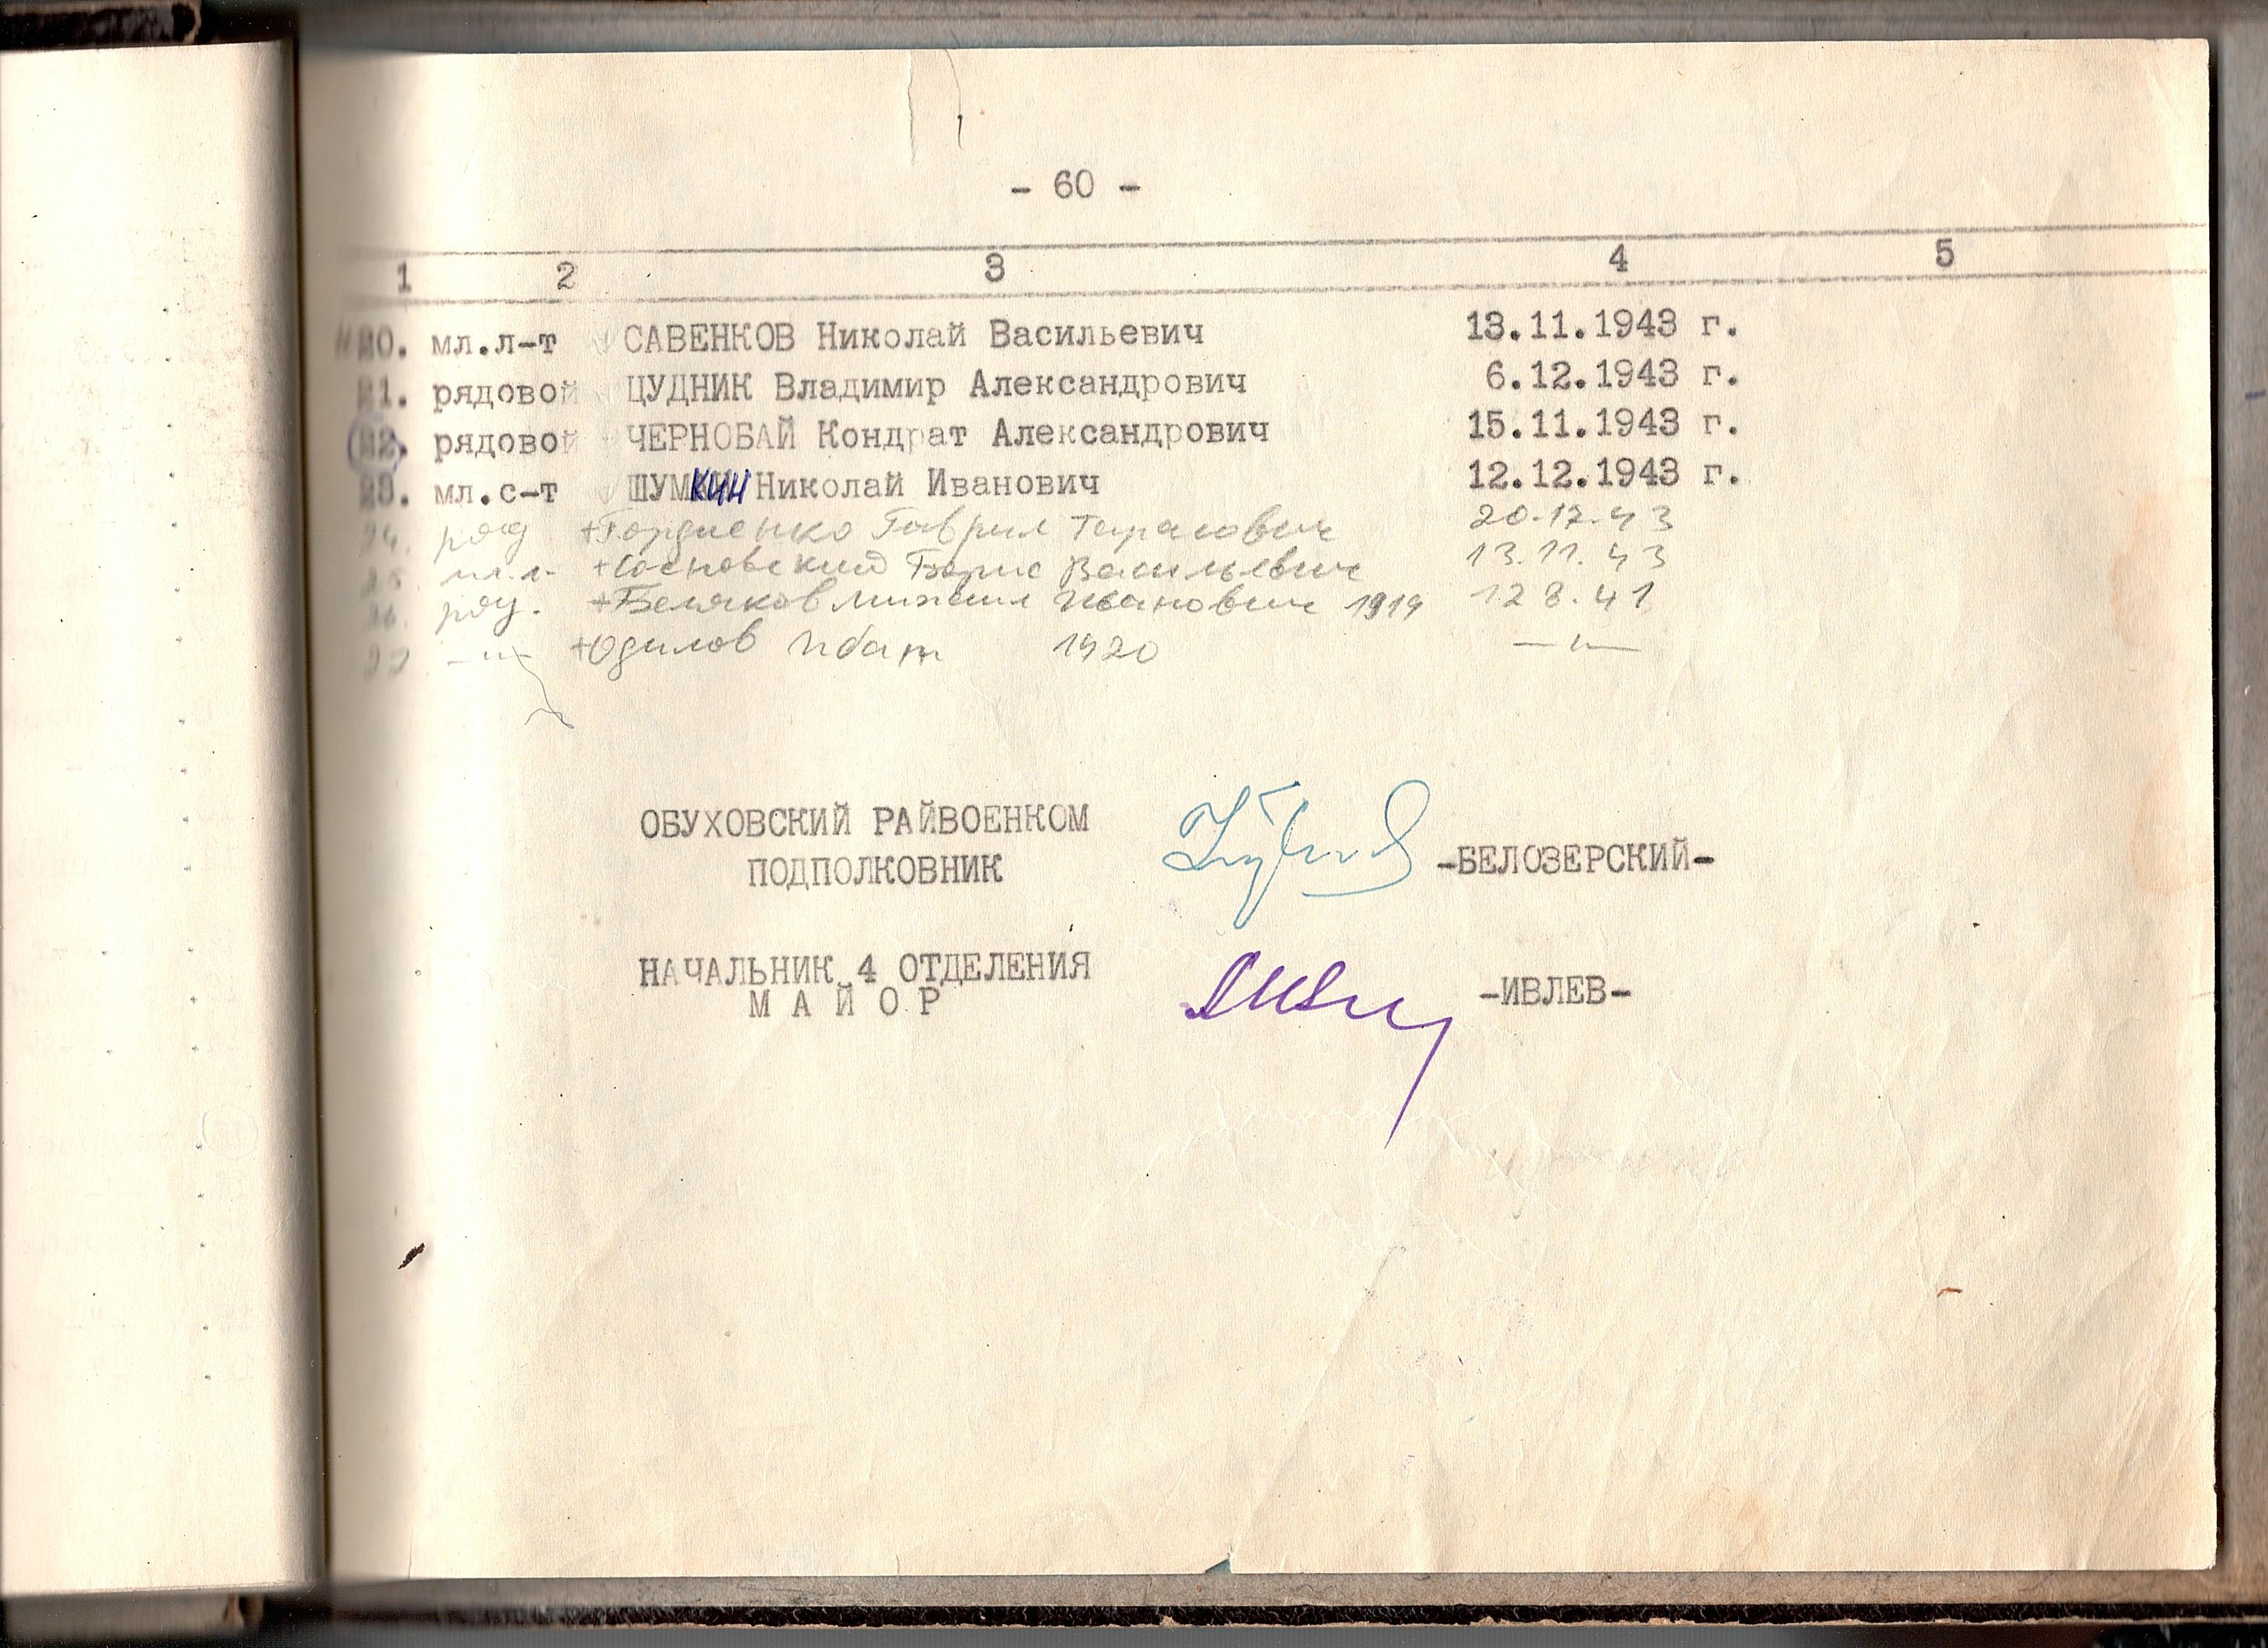 - 60 -
1 2 3 4 5
20. мл.л-т САВЕНКОВ Николай Васильевич 13.11.1943 г.
21. рядовой ЦУДНИК Владимир Александрович 6.12.1943 г.
22. рядовой ЧЕРНОБАЙ Кондрат Александрович 15.11.1943 г.
23. мл.с-т ШУМКИН Николай Иванович 12.12.1943 г.
24. ряд +Гордиенко Гаврил Тарасович 20.12.43
25. мл.л. +Сосновский Борис Васильевич 13.11.43
26. ряд. +Беляков Михаил Иванович 1919 12 8.41
27 -"- +Одилов Ибат 1920 -"-
ОБУХОВСКИЙ РАЙВОЕНКОМ
ПОДПОЛКОВНИК -БЕЛОЗЕРСКИЙ-
НАЧАЛЬНИК 4 ОТДЕЛЕНИЯ
М А Й О Р -ИВЛЕВ-